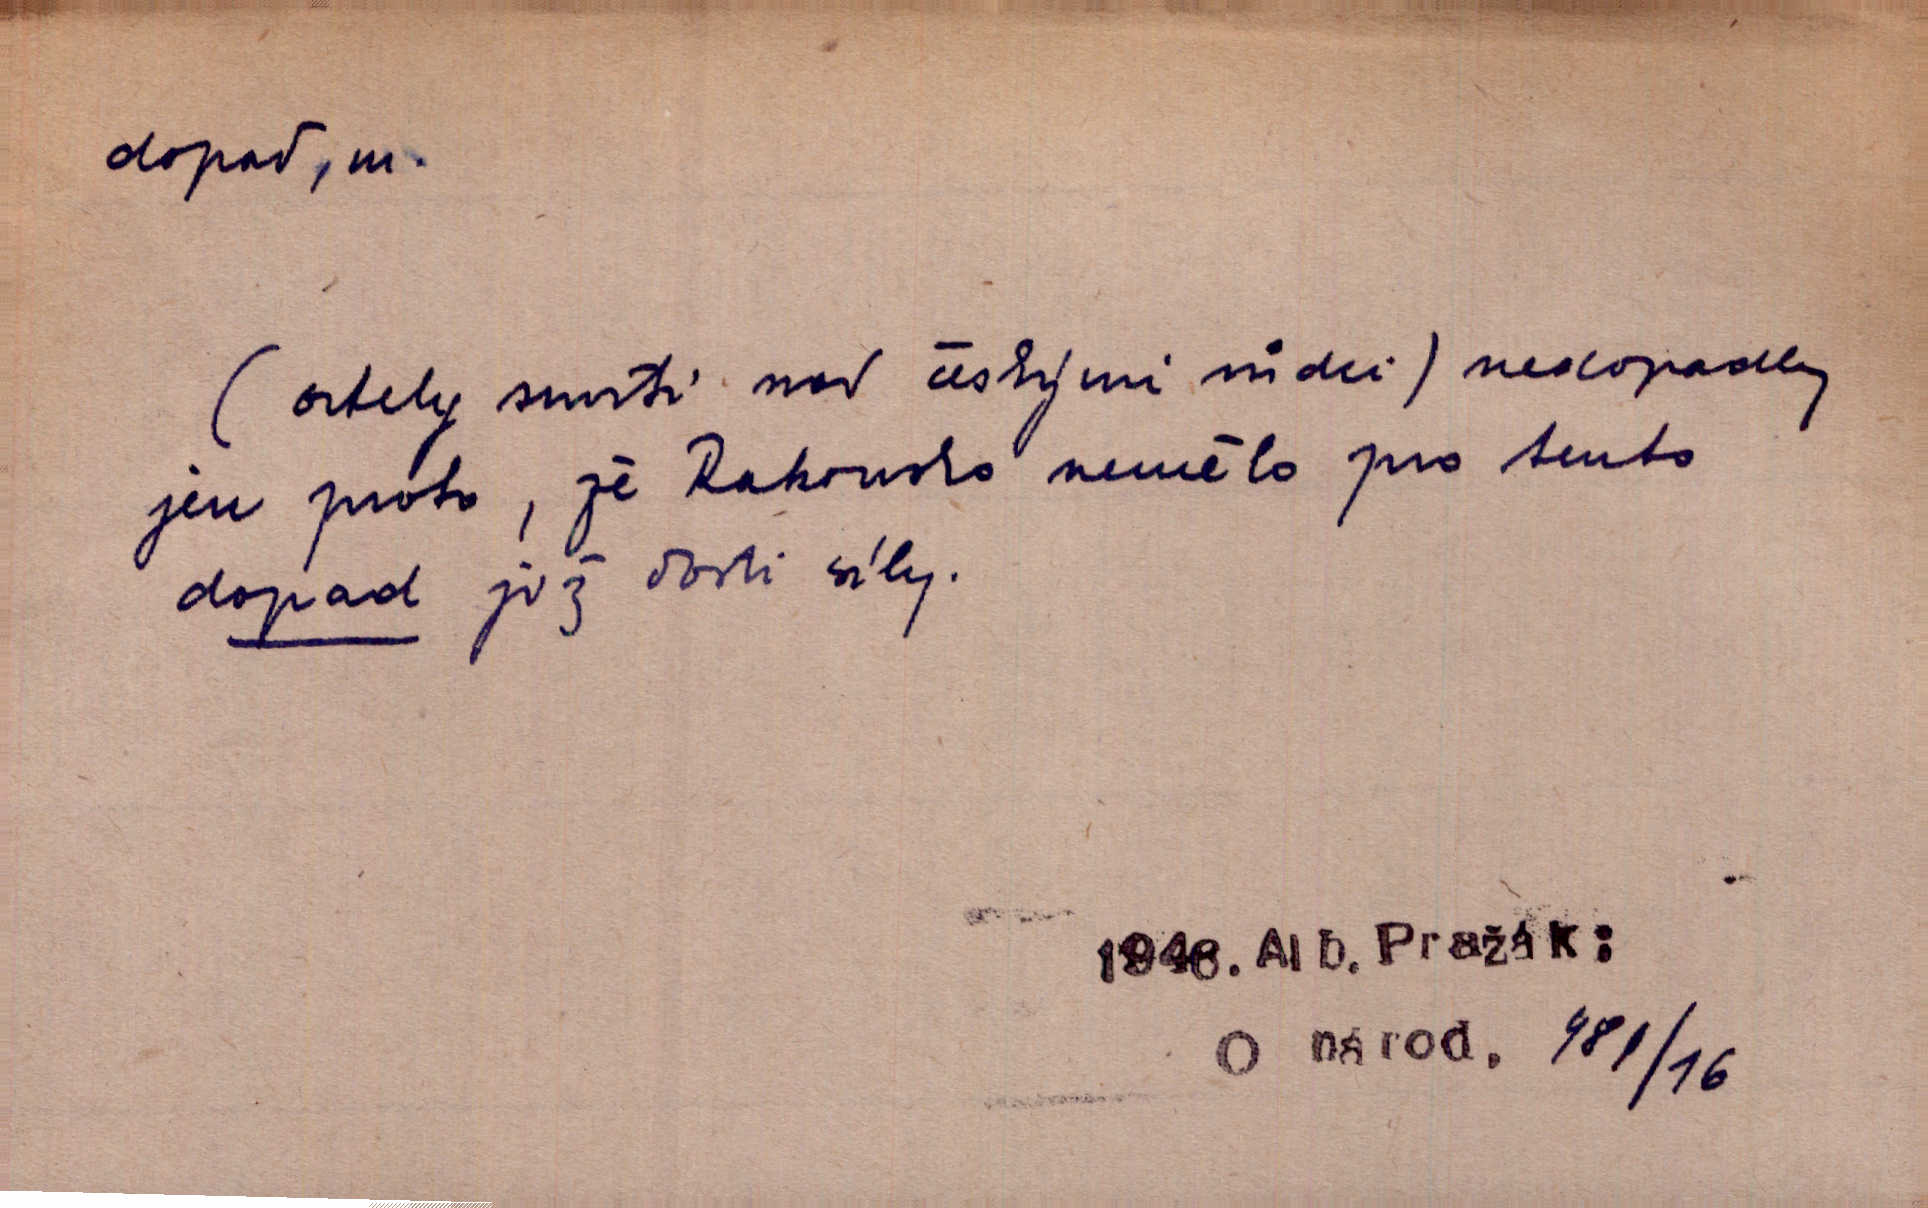 dopad, m.
(ortely smrti nad českými vůdci) nedopadly
jen proto, že Rakousko nemělo pro tento
dopad již dosti síly.
1946. Alb. Pražák:
O národ. 481/16